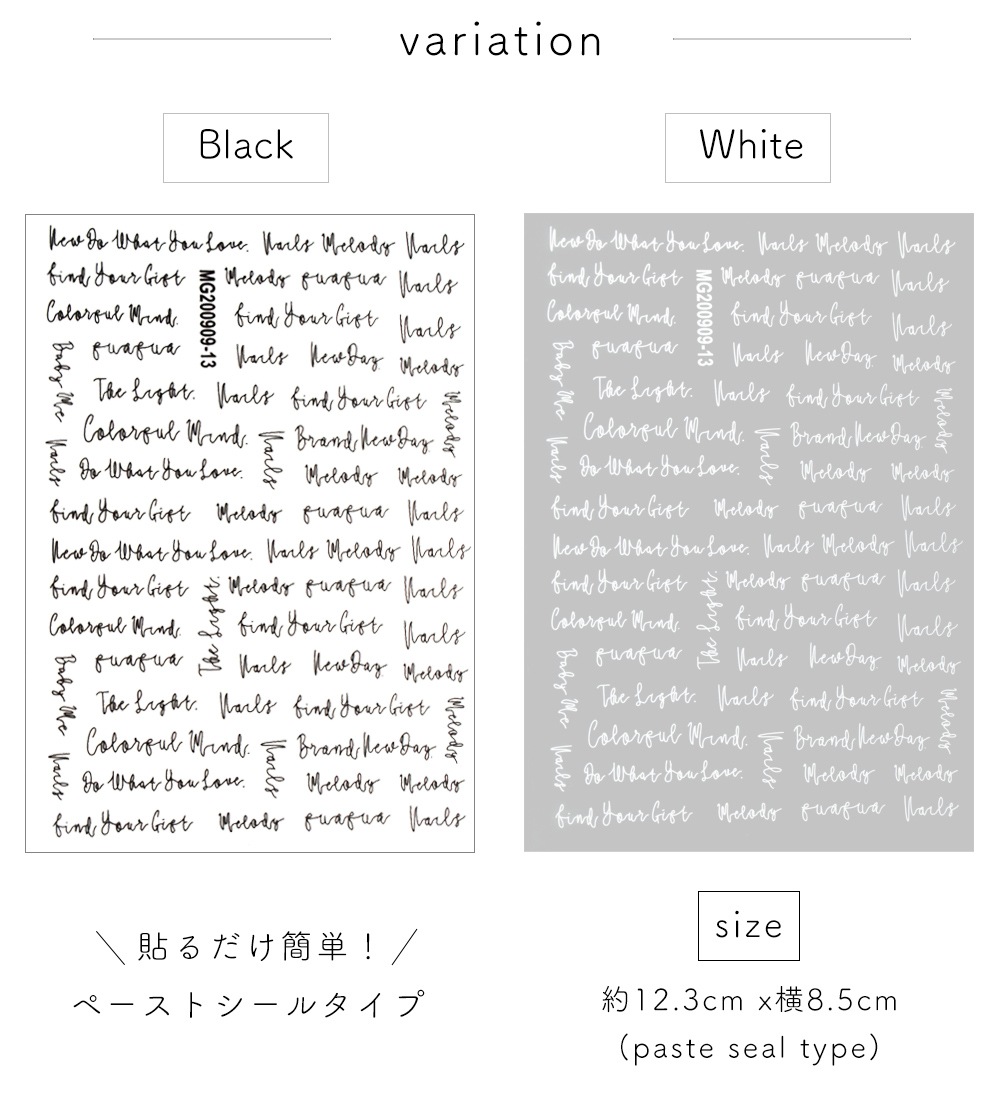 variation
Black
White
New Do What You Love. Nails Melody Nails
find Your Gift Melody fuafua Nails
MG200909-13
Colorful Mind. find Your Gift Nails
Baby Me fuafua Nails New Day. Melody
The Light. Nails find Your Gift Melody
Colorful Mind. Nails Brand New Day
Nails Do What You Love. Melody Melody
find Your Gift Melody fuafua Nails
New Do What You Love. Nails Melody Nails
find Your Gift The Light. Melody fuafua Nails
Colorful Mind. find Your Gift Nails
Baby Me fuafua Nails New Day Melody
The Light. Nails find Your Gift Melody
Colorful Mind. Nails Brand New Day
Nails Do What You Love. Melody Melody
find Your Gift Melody fuafua Nails
New Do What You Love. Nails Melody Nails
find Your Gift Melody fuafua Nails
MG200909-13
Colorful Mind. find Your Gift Nails
Baby Me fuafua Nails New Day. Melody
The Light. Nails find Your Gift Melody
Colorful Mind. Nails Brand New Day
Nails Do What You Love. Melody Melody
find Your Gift Melody fuafua Nails
New Do What You Love. Nails Melody Nails
find Your Gift The Light. Melody fuafua Nails
Colorful Mind. find Your Gift Nails
Baby Me fuafua Nails New Day Melody
The Light. Nails find Your Gift Melody
Colorful Mind. Nails Brand New Day
Nails Do What You Love. Melody Melody
find Your Gift Melody fuafua Nails
＼貼るだけ簡単！／
ペーストシールタイプ
size
約12.3cm x横8.5cm
（paste seal type）